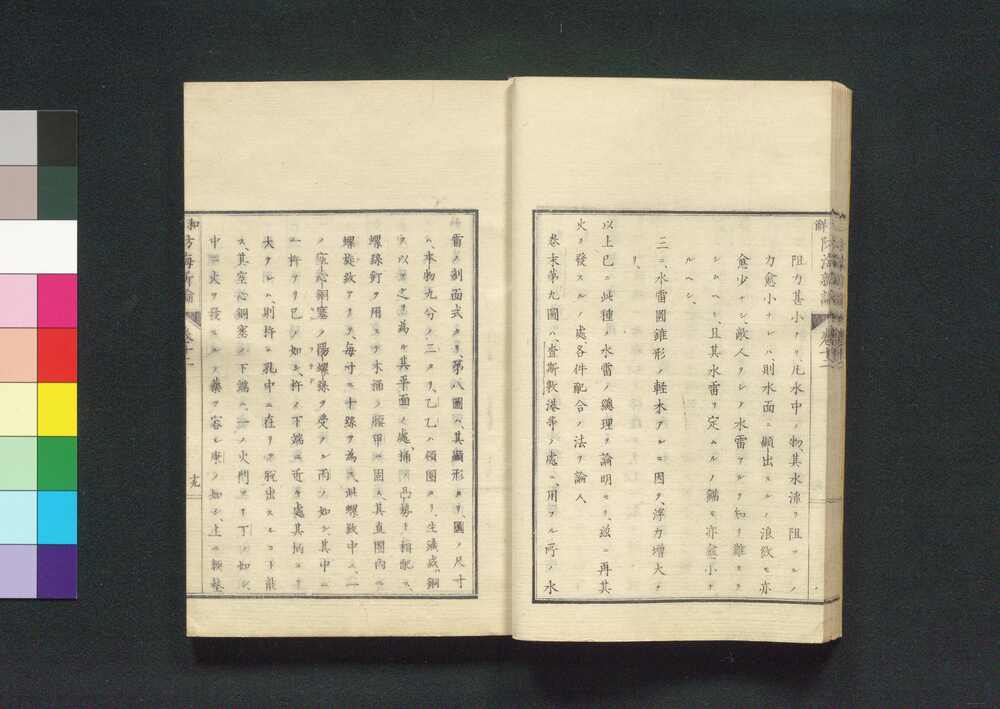 阻力甚小ナリ、凡水中ノ物、其水沸ヲ阻スルノ
力愈小ナレハ、則水面ニ顯出スルノ浪紋モ亦
愈少ナシ、敵人ヲシテ水雷アルヲ知リ難カラ
シムヘシ、且其水雷ヲ定ムルノ錨モ亦愈小ナ
ルヘシ、
三ニ、水雷圓錐形ノ軽木アルニ因テ、浮力増大ナ
リ、
以上已ニ此種ノ水雷ノ總理ヲ論明セリ、茲ニ再其
火ヲ發スルノ處、各件配合ノ法ヲ論ス、
卷末第九圖ハ、査斯敦港等ノ處ニ、用フル所ノ水
雷ノ剖面式ナリ、第八圖ハ、其顯形ナリ、圖ノ尺寸
ハ、本物九分ノ二ナリ、乙乙ハ領圈ナリ、生鐵或銅
ヲ以テ之ヲ為ル、其平面ノ處、桶ノ凸勢ト相配ス、
螺絲釘ヲ用ヒテ木桶ノ
螺旋紋アリテ、毎寸ニ十絲ヲ為ス、此螺紋中ニ、一
ノ空心銅塞ノ陽螺絲ヲ受ク、丙ノ如シ、其中ニ
一杵アリ、己ノ如シ、杵ノ下端ニ近キ處、其柄ヨリ
大ナレハ、則杵ハ孔中ニ在リテ、脱出スルコト能
ス、其空心銅塞ノ下端ニ、一ノ火門アリ、丁ノ如シ、
中ニ火ヲ發スル藥ヲ容ル、庚ノ如シ、上ニ
卷十二